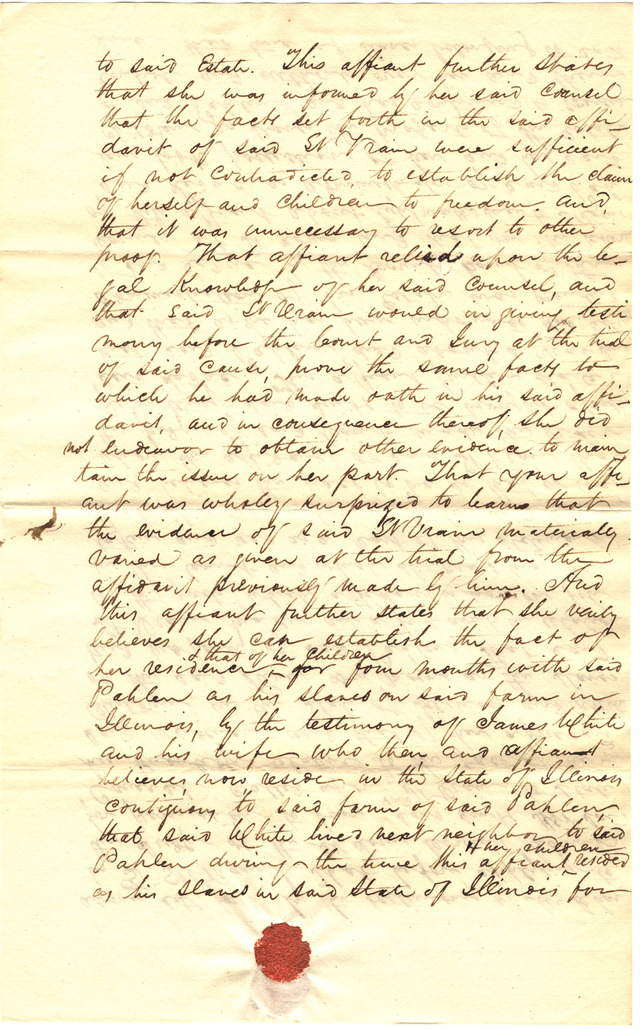 to said Estate. This affiant further states
that she was informed by her said counsel
that the facts set forth in the said affi-
davit of said St Vrain were sufficient
if not contradicted, to establish the claim
of herself and children to freedom. and,
that it was unnecessary to resort to other
proof. That affiant relied upon the le-
gal Knowledge of her said counsel, and
that said St Vrain would in giving testi
mony before the Court and Jury at the trial
of said cause, prove the same facts to
which he had made oath in his said affi-
davit, and in consequence thereof, she did
not endeavor to obtain other evidence to main
tain the issue on her part. That your affi-
ant was wholey surprized to learn that
the evidence of said St Vrain materially
varied as given at the trial from the
affidavit previously made by him. And
this affiant further states that she verily
believes she can establish the fact of
& that of her Children
her residence for four months with said
Pahlen as his slaves on said farm in
Illinois, by the testimony of James White
and his wife who then, and affiant
believes, now reside in the State of Illinois
contiguous to said farm of said Pahlen,
that said White lived next neighbor to said
& her children
Pahlen during the time this affiant resided
as his slaves in said State of Illinois for